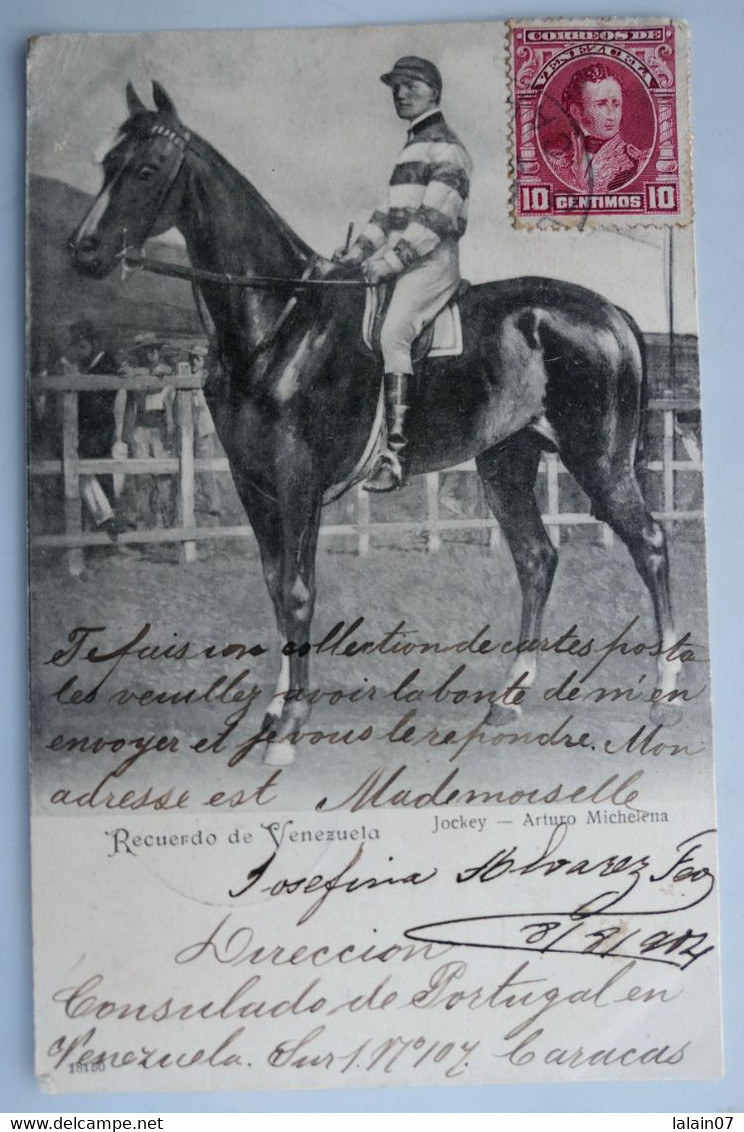 CORREOS DE
VENEZUELA
10 CENTIMOS 10
Je fais une collection de cartes posta
les veuillez avoir la bonte de m'en
envoyer et je vous le repondre. Mon
adresse est Mademoiselle
Recuerdo de Venezuela
Jockey — Arturo Michelena
Josefina Alvarez Feo
8/8/904
Direccion
Consulado de Portugal en
Venezuela. Sur 1. Nº 107. Caracas
18150
lalain07